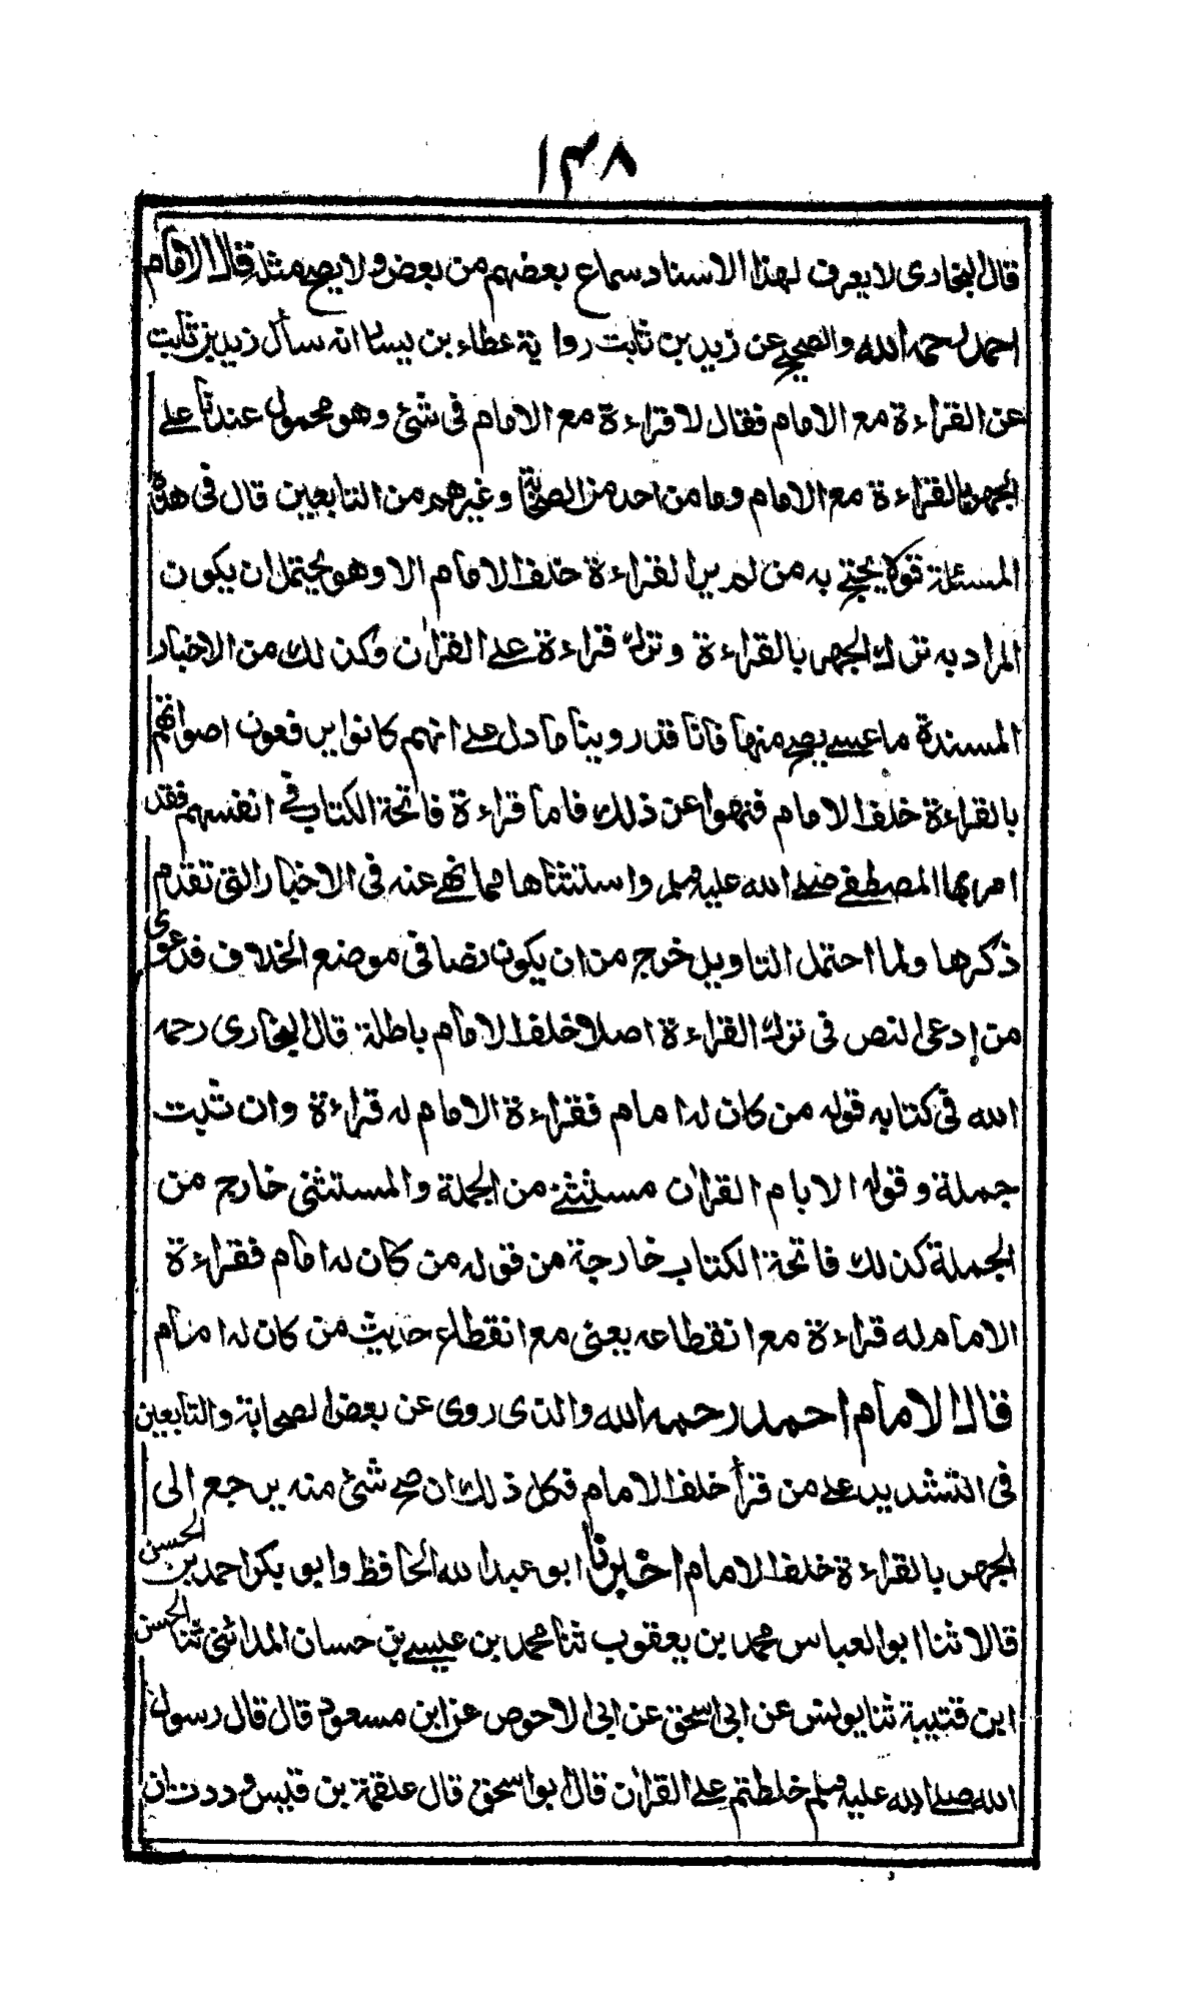 ١٣٨
قال البخاري لا يعرف لهذا الاسناد سماع بعضهم من بعض ولا يصح مثله قال الامام
احمد رحمه الله والصحيح عن زيد بن ثابت رواية عطاء بن يسار انه سأل زيد بن ثابت
عن القراءة مع الامام فقال لا قراءة مع الامام في شئ وهو محمول عندنا على
الجهر بالقراءة مع الامام وما من احد من الصحابة وغيرهم من التابعين قال في هذه
المسئلة قولا يحتج به من لم ير القراءة خلف الامام الا وهو يحتمل ان يكون
المراد به ترك الجهر بالقراءة وترك قراءة على القرآن وكذلك من الاخبار
المسندة ما عسى يصح منها فانا قد روينا ما دل على انهم كانوا يرفعون اصواتهم
بالقراءة خلف الامام فنهوا عن ذلك فاما قراءة فاتحة الكتاب في انفسهم فقد
امر بها المصطفى صلى الله عليه وسلم واستثناها مما نهى عنه في الاخبار التي تقدم
ذكرها ولما احتمل التاويل خرج من ان يكون نصا في موضع الخلاف فدعوى
من إدعى النص في ترك القراءة اصلا خلف الامام باطلة قال البخاري رحمه
الله في كتابه قوله من كان له امام فقراءة الامام له قراءة وان ثبت
جملة وقوله الا بام القرآن مستثنى من الجملة والمستثنى خارج من
الجملة كذلك فاتحة الكتاب خارجة من قوله من كان له امام فقراءة
الامام له قراءة مع انقطاعه يعنى مع انقطاع حديث من كان له امام
قال الامام احمد رحمه الله والذى روى عن بعض الصحابة والتابعين
في التشديد على من قرأ خلف الامام فكل ذلك ان صح شئ منه يرجع الى
الجهر بالقراءة خلف الامام اخبرنا ابو عبد الله الحافظ وابو بكر احمد بن الحسن
قالا ثنا ابو العباس محمد بن يعقوب ثنا محمد بن عيسى بن حسان المدائني ثنا الحسن
ابن قتيبة ثنا يونس عن ابي اسحق عن ابي الاحوص عن ابن مسعود قال قال رسول
الله صلى الله عليه وسلم خلطتم على القرآن قال ابو اسحق قال علقمة بن قيس وددت ان